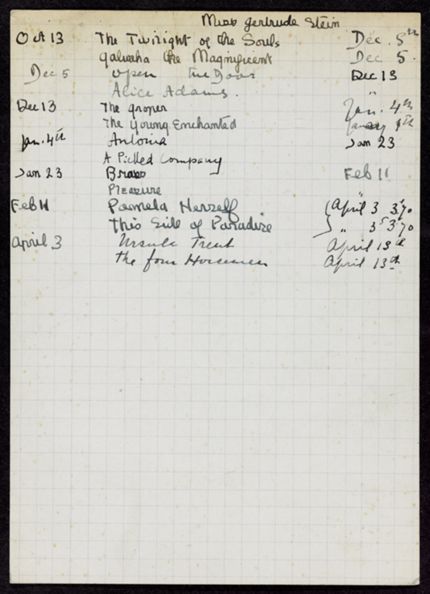 Miss Gertrude Stein
Oct 13 The Twilight of the Souls Dec. 5th
Galusha the Magnificent Dec 5.
Dec 5 Open the Door Dec 13
Alice Adams. "
Dec 13 The Groper Jan. 4th
The Young Enchanted
Jan. 4th Antonia Jan 23
A Pilled Company
Jan 23 Brass Feb 11
Pleasure
Feb 11 Pamela Herself April 3
This Side of Paradise "
April 3 Ursula Trent April 13th
the four Horsemen April 13th